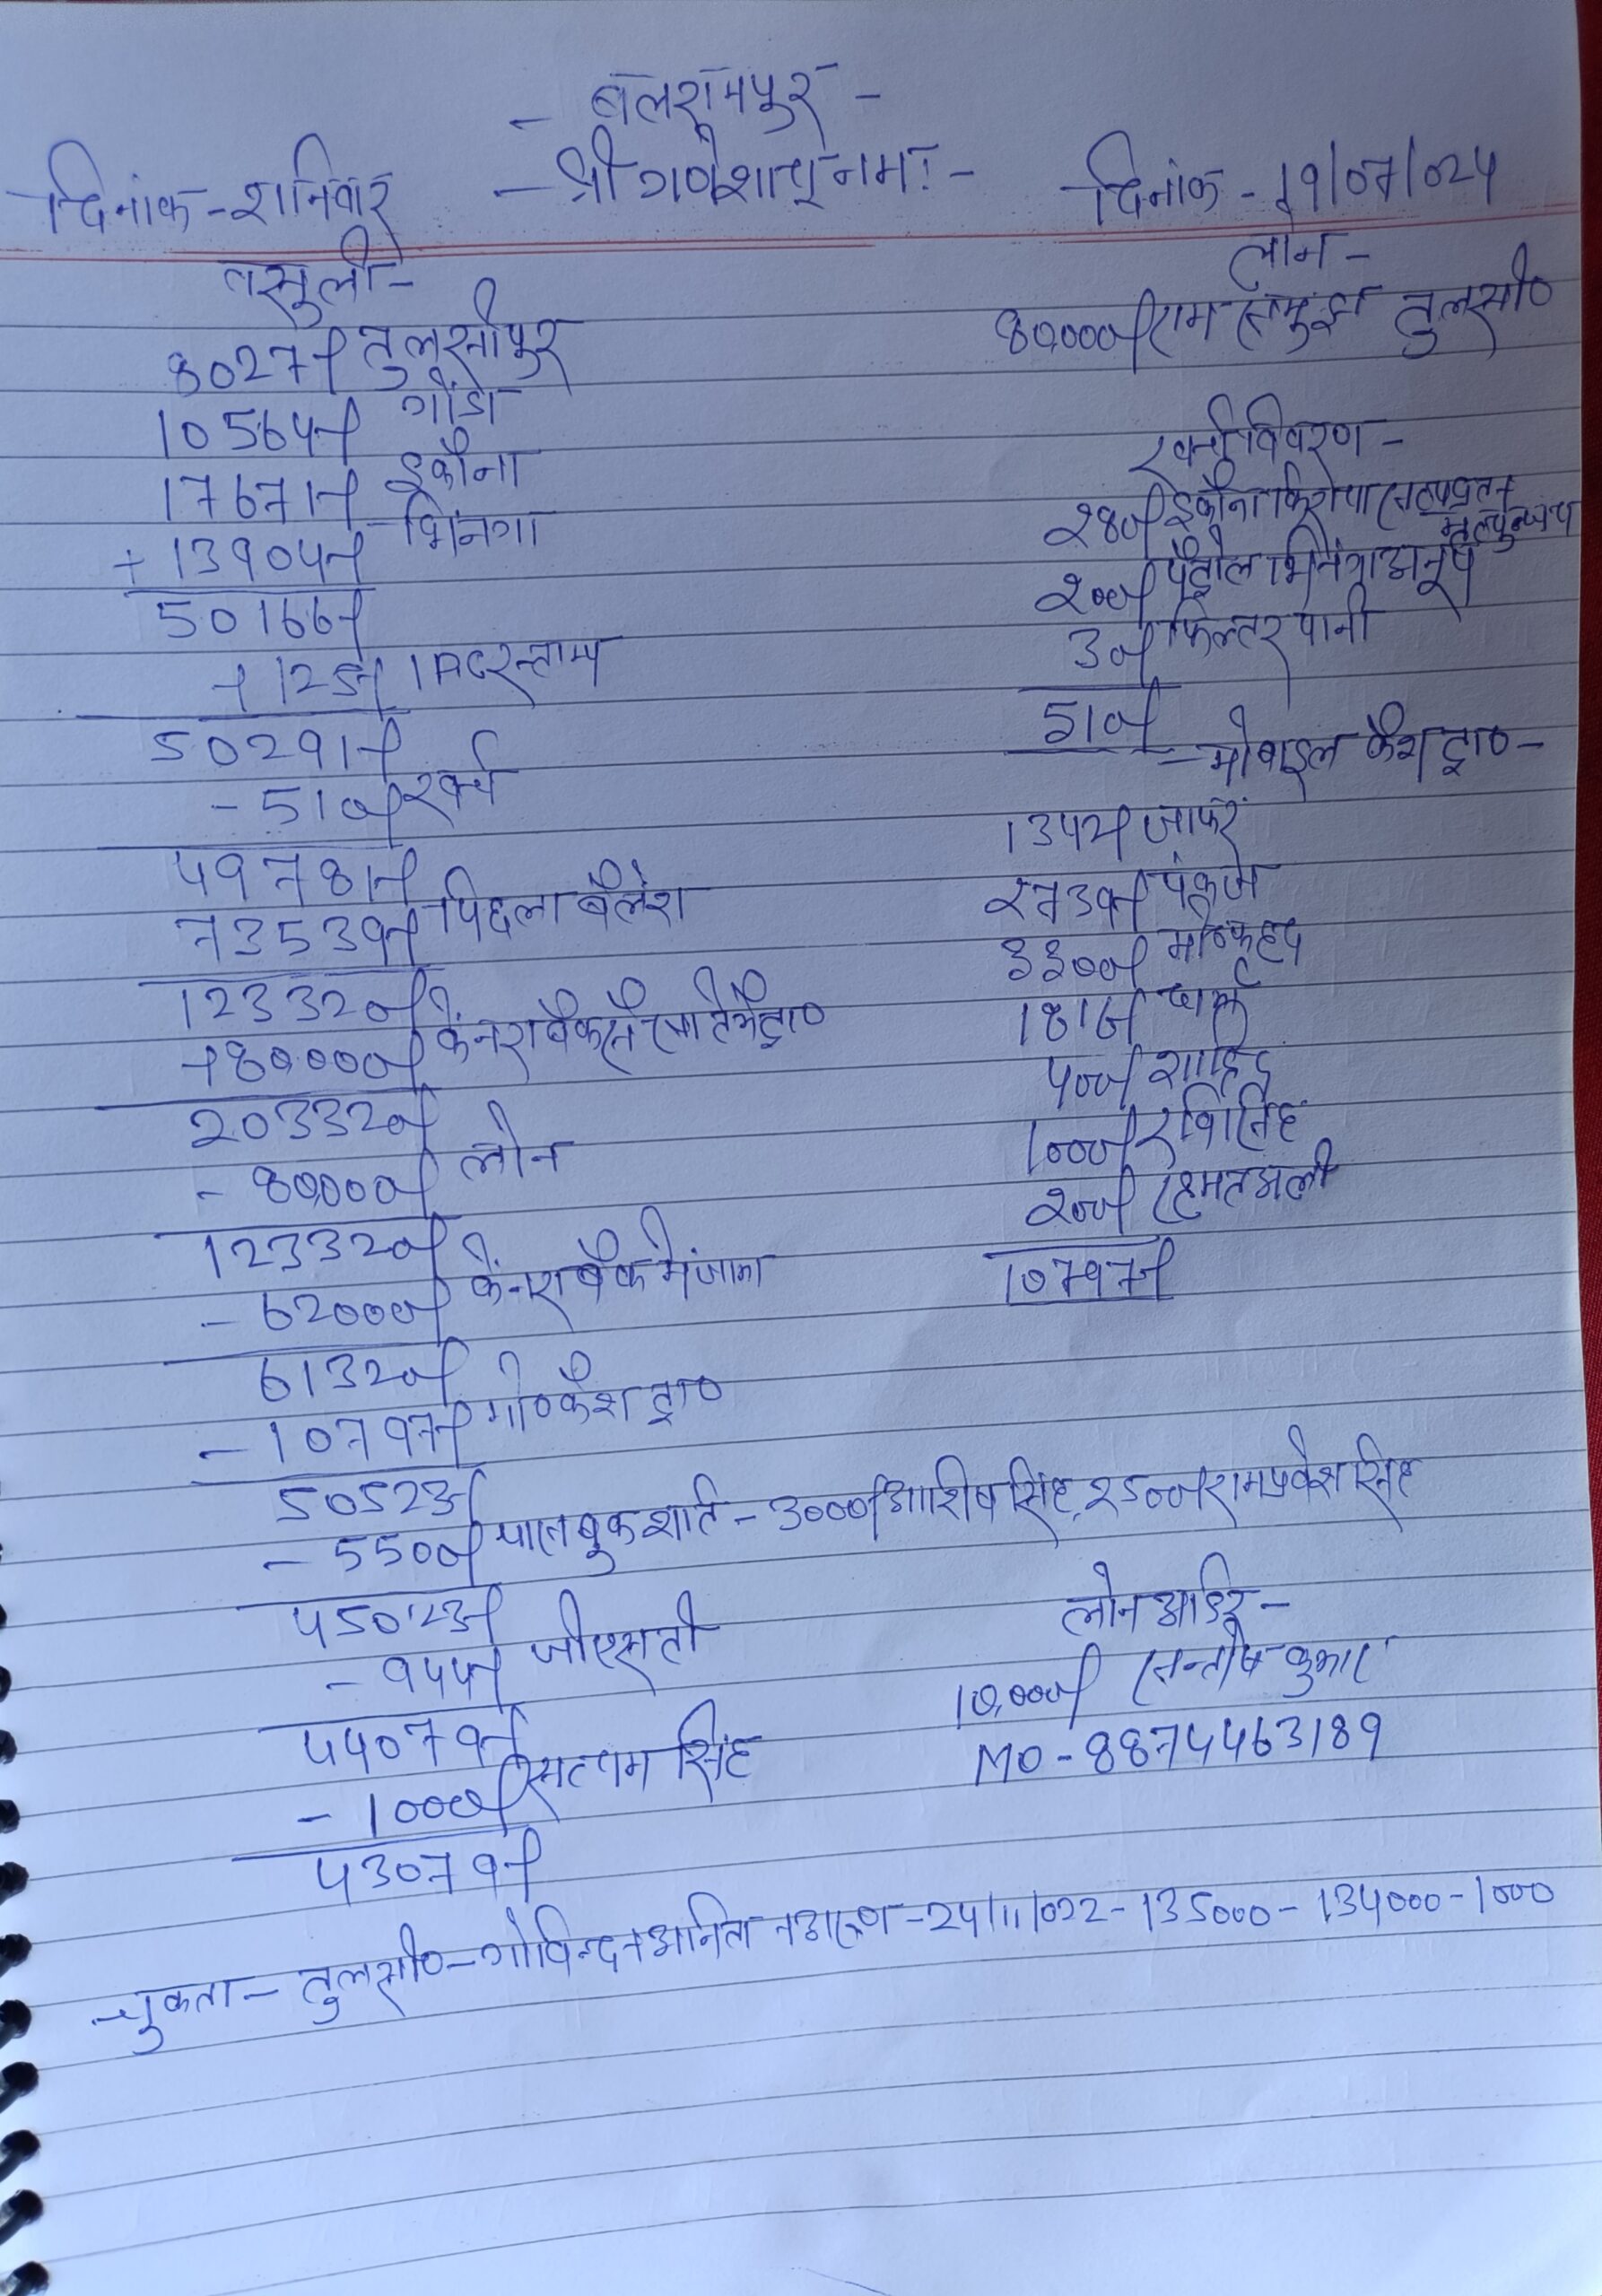 - बलरामपुर -
दिनांक - शनिवार - श्री गणेशाय नमः - दिनांक - 19/07/025
वसुली -
8027/ तुलसीपुर
10564/ गोंडा
17671/ इकौना
+ 13904/ भिनगा
50166/
+ 125/
50291/
- 510/ खर्च
49781/
73539/ पिछला बैलेंश
123320/
+80,000/ केनरा बैंक से
203320/
- 80,000/ लोन
123320/
- 62000/ केनरा बैंक में जमा
61320/
- 10797/ मो० कैश ट्रा०
50523/
- 5500/ पासबुक शार्ट - 3000/ आशिष सिंह, 2500/ रामप्रवेश सिंह
45023/
- 944/ जीएसटी
44079/
- 1000/ सतनाम सिंह
43079/
लोन -
80,000/ राम समुझ तुलसी०
खर्च विवरण -
280/ इकौना किराया
200/ पेट्रोल भिनगा अनूप
30/ फिल्टर पानी
510/
- मोबाइल कैश ट्रा० -
1342/ जाफर
2739/ पंकज
3300/
1816/
400/ शाहिद
1000/ रवि सिंह
200/ रहमत अली
10797/
लोन आर्डर -
10,000/ सन्तोष कुमार
MO - 8874463189
चुकता - तुलसी० - गोविन्द + अनिता - 24/11/022 - 135000 - 134000 - 1000